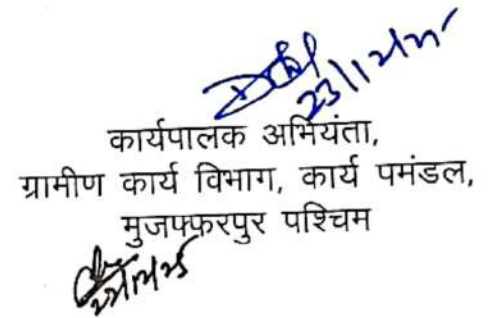 23/12/25
कार्यपालक अभियंता,
ग्रामीण कार्य विभाग, कार्य पमंडल,
मुजफ्फरपुर पश्चिम